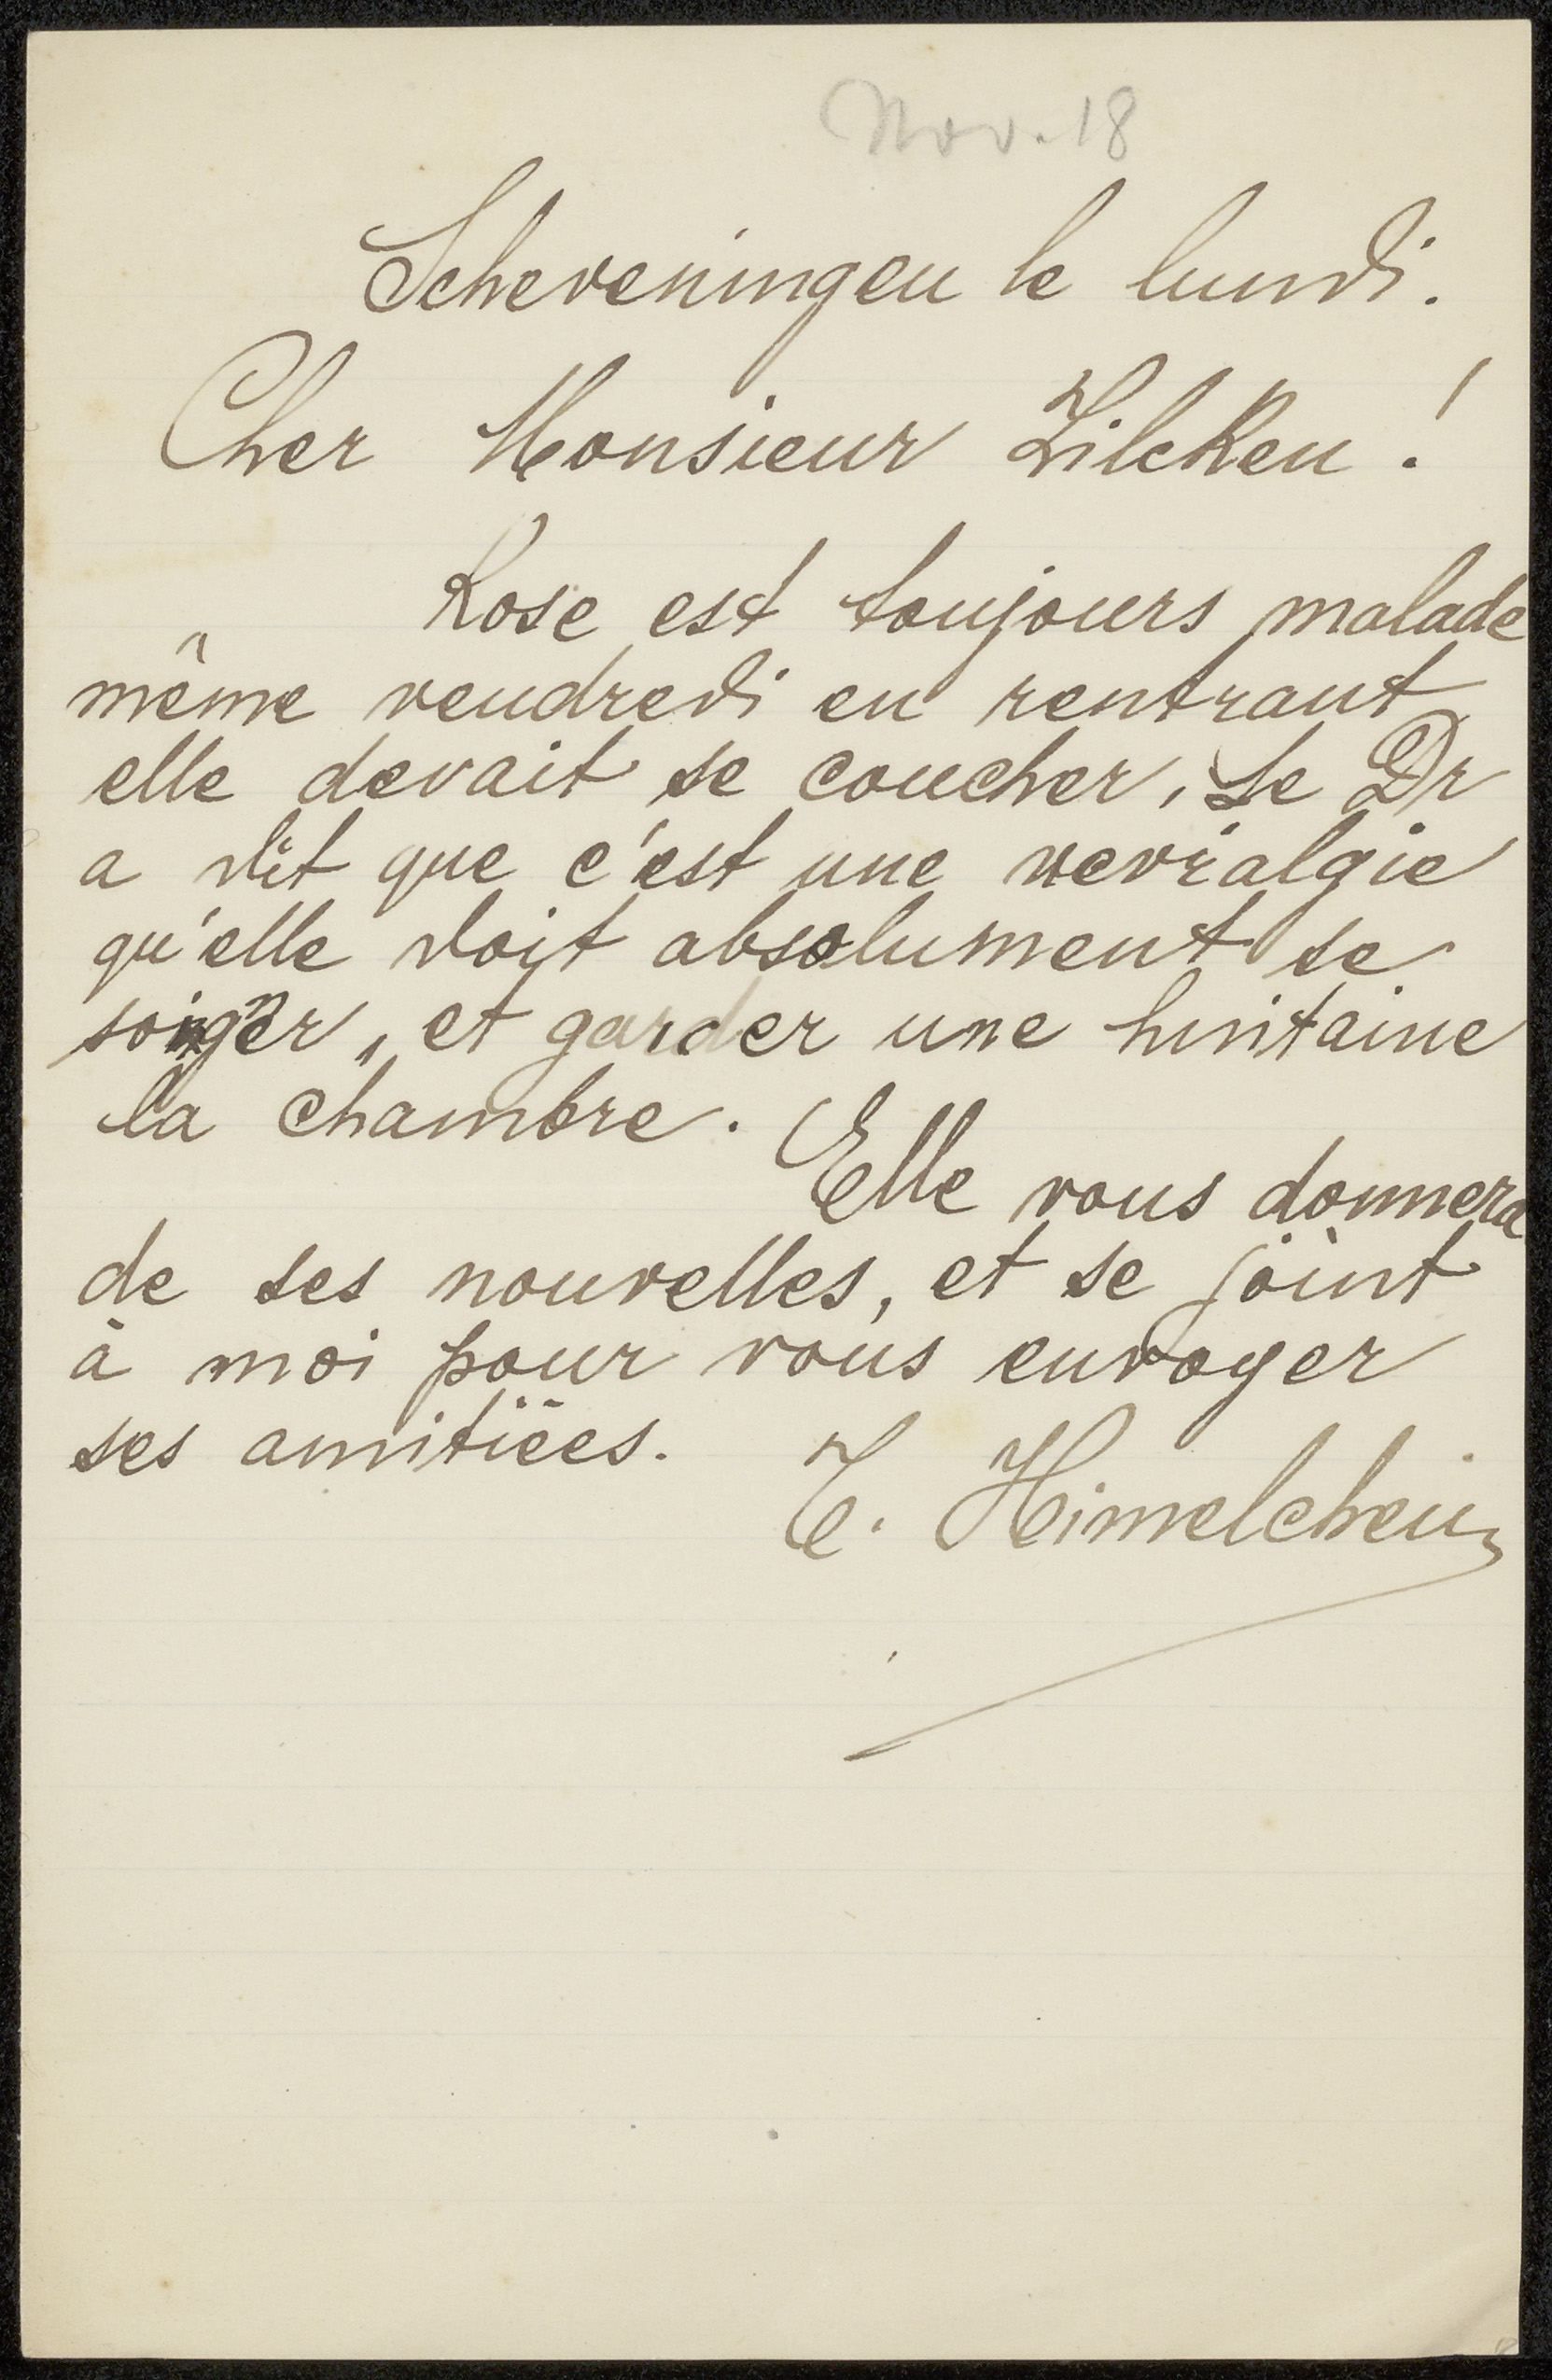 Nov. 18
Scheveningen le lundi.
Cher Monsieur Zilcken!
Rose est toujours malade
même vendredi en rentrant
elle devait se coucher, Le Dr
a dit que c'est une nevralgie
qu'elle doit absolument se
soigner, et garder une huitaine
la chambre.
Elle vous donnera
de ses nouvelles, et se joint
à moi pour vous envoyer
ses amitiées.
T. Himelchein